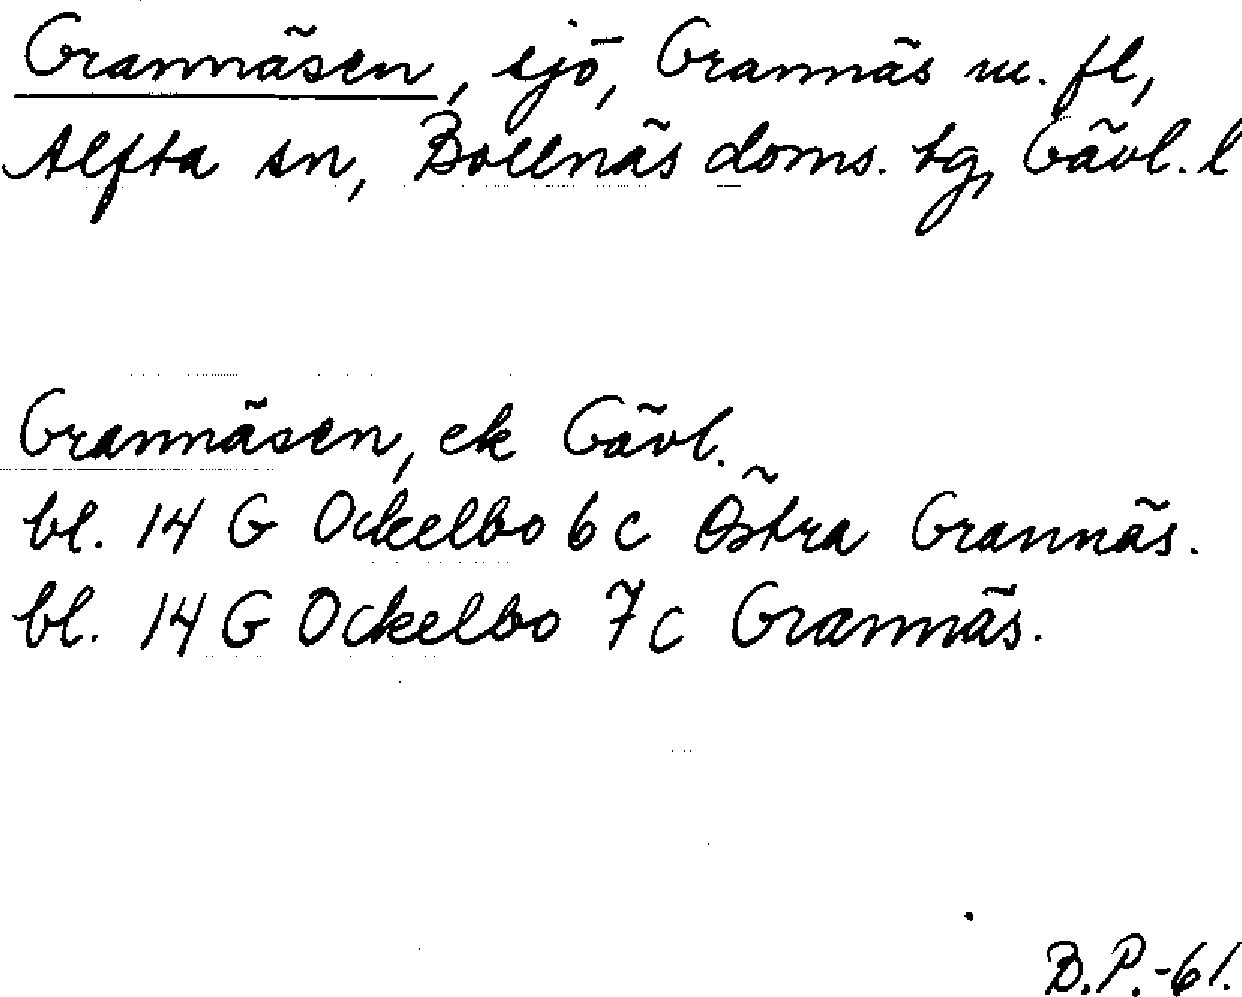 Grannäsen, sjö, Grannäs m. fl,
Alfta sn, Bollnäs doms. tg, Gävl. l
Grannäsen, ek Gävl.
bl. 14 G Ockelbo 6c Östra Grannäs.
bl. 14 G Ockelbo 7c Grannäs.
B.P.-61.